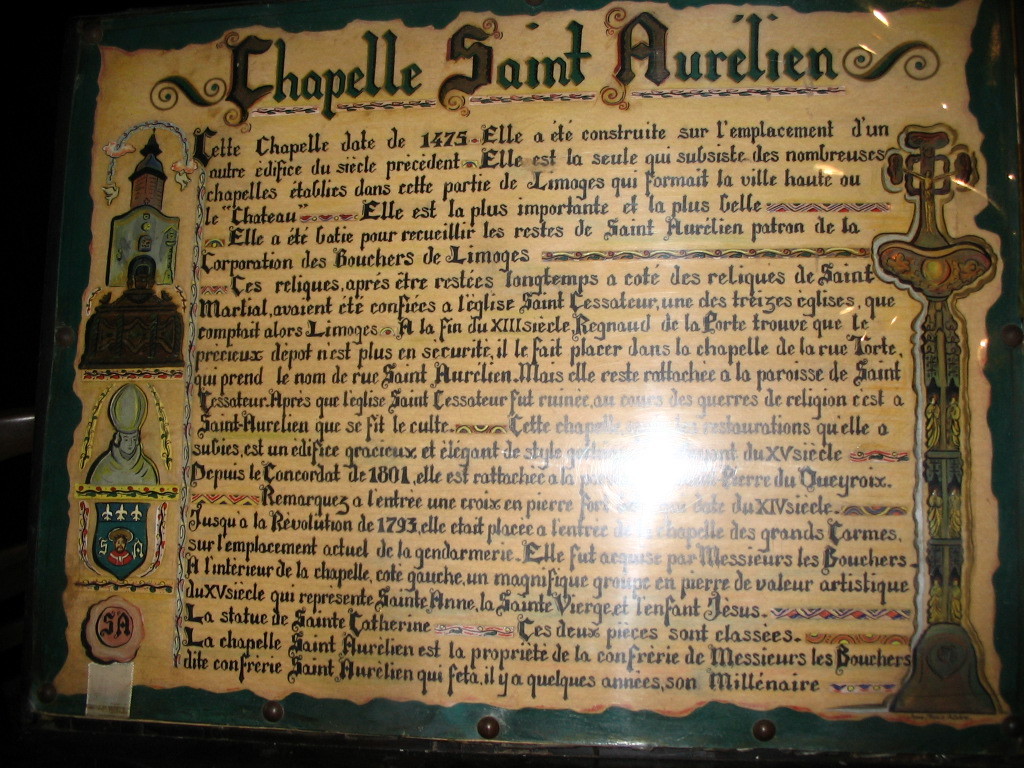 Chapelle Saint Aurélien
Cette Chapelle date de 1475. Elle a été construite sur l'emplacement d'un
autre édifice du siècle précédent. Elle est la seule qui subsiste des nombreuses
chapelles établies dans cette partie de Limoges qui formait la ville haute ou
le "Chateau" Elle est la plus importante et la plus belle
Elle a été batie pour recueillir les restes de Saint Aurélien patron de la
Corporation des Bouchers de Limoges
Ces reliques, après être restées longtemps a coté des reliques de Saint
Martial, avaient été confiées a l'église Saint Cessateur, une des treizes églises, que
comptait alors Limoges. A la fin du XIII siècle, Regnaud de la Porte trouve que le
précieux dépot n'est plus en securité, il le fait placer dans la chapelle de la rue Torte,
qui prend le nom de rue Saint Aurélien. Mais elle reste rattachée a la paroisse de Saint
Cessateur. Après que l'église Saint Cessateur fut ruinée, au cours des guerres de religion c'est a
Saint-Aurelien que se fit le culte. Cette chapelle, restaurations qu'elle a
subies, est un édifice gracieux et élégant de style du XV siècle
Depuis le Concordat de 1801, elle est rattachée a la Pierre du Queyroix.
Remarquez a l'entrée une croix en pierre date du XIV siècle.
Jusqu'a la Révolution de 1793, elle etait placée a l'entrée de la chapelle des grands Carmes,
sur l'emplacement actuel de la gendarmerie. Elle fut acquise par Messieurs les Bouchers.
A l'intérieur de la chapelle, coté gauche, un magnifique groupe en pierre de valeur artistique
du XV siècle qui represente Sainte Anne, la Sainte Vierge, et l'enfant Jésus.
La statue de Sainte Catherine Ces deux pièces sont classées.
La chapelle Saint Aurélien est la propriété de la confrérie de Messieurs les Bouchers
dite confrérie Saint Aurélien qui feta, il y a quelques années, son Millénaire
S A
SA